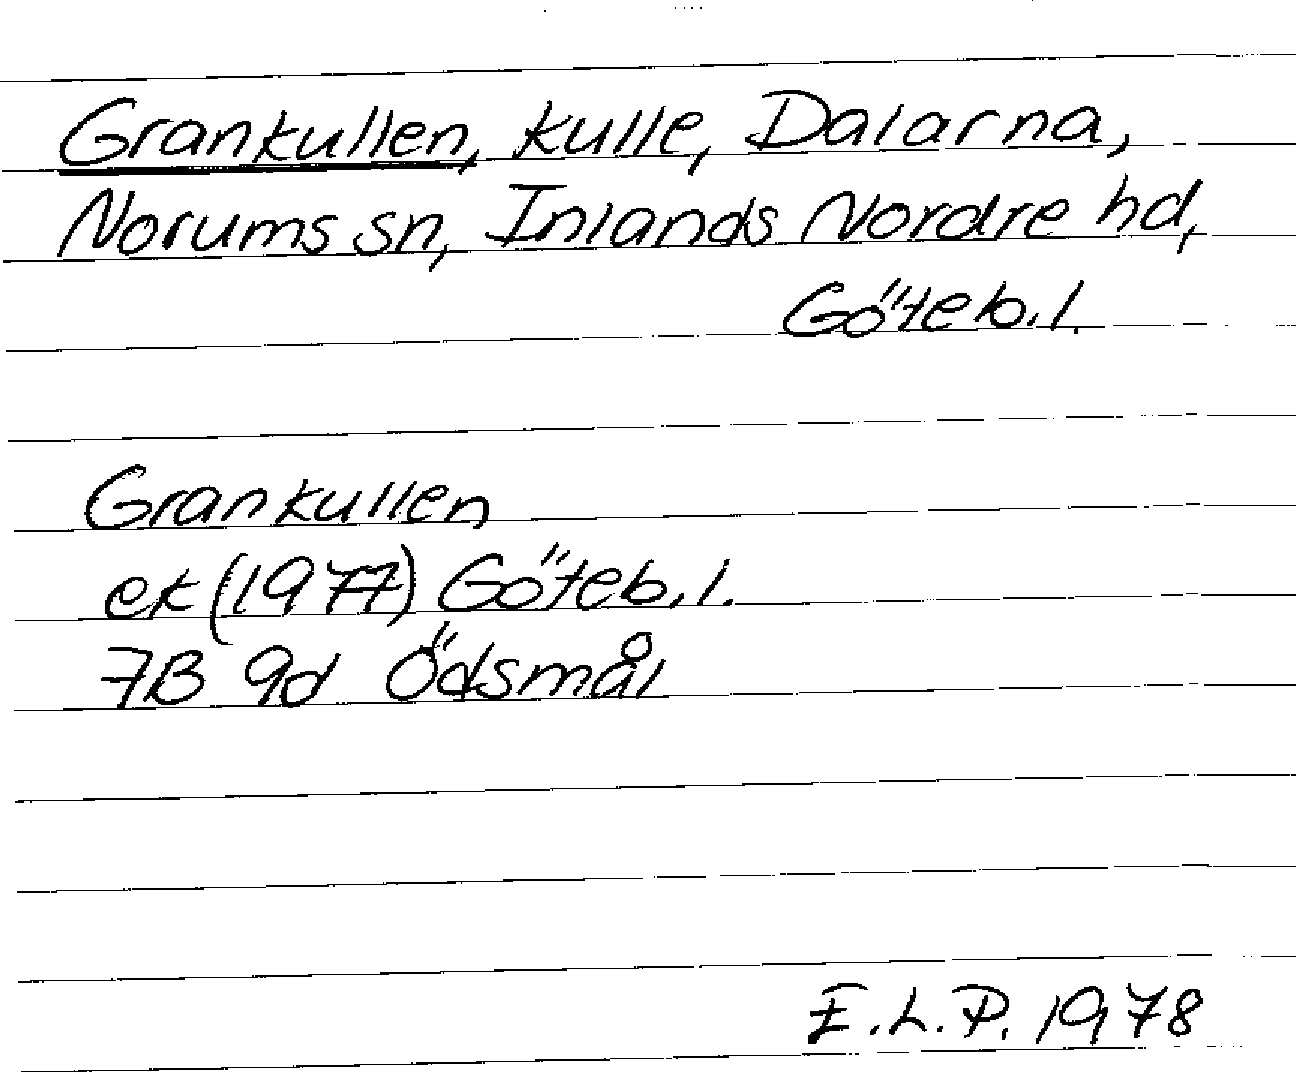 Grankullen, kulle, Dalarna,
Norums sn, Inlands Nordre hd,
Göteb.l.
Grankullen
ek (1977) Göteb.l.
7B 9d Ödsmål
E.L.P. 1978